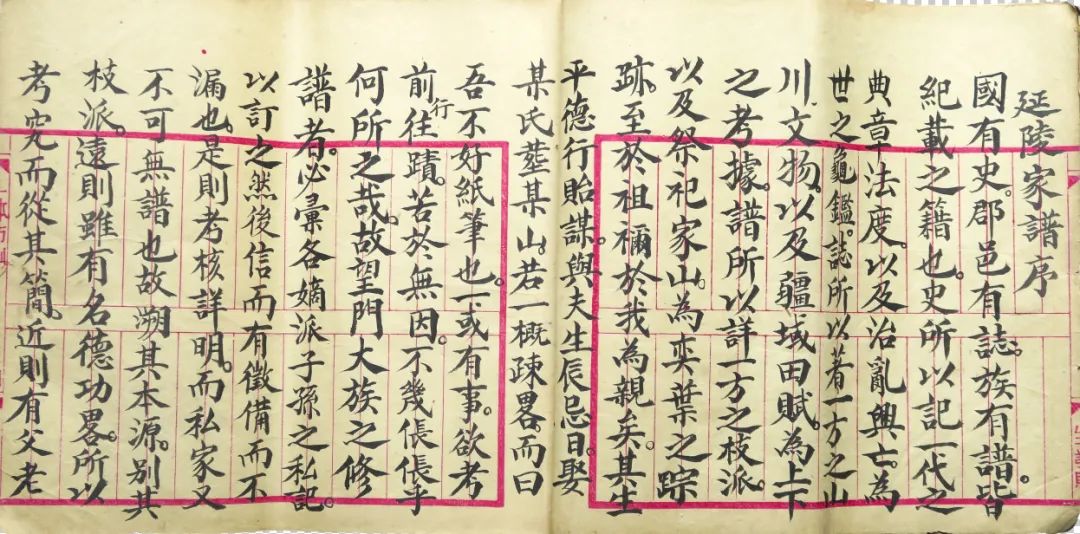 延陵家譜序
國有史。郡邑有誌。族有譜。皆
紀載之籍也。史所以記一代之
典章法度。以及治亂興亡。為
世之龜鑑。誌所以著一方之山
川文物。以及疆域田賦。為上下
之考據。譜所以詳一方之枝派。
以及祭祀家山。為奕葉之踪
跡。至於祖禰於我為親矣。其生
平德行貽謀。與夫生辰忌日。娶
某氏塟某山。若一概疎畧。而曰
吾不好紙筆也。一或有事。欲考
前行往蹟。苦於無因。不幾倀倀乎
何所之哉。故望門大族之修
譜者。必彙各嫡派子孫之私記。
以訂之。然後信而有徵備而不
漏也。是則考核詳明。而私家又
不可無譜也故溯其本源。別其
枝派。遠則雖有名德功畧。所以
考究而從其簡。近則有父老